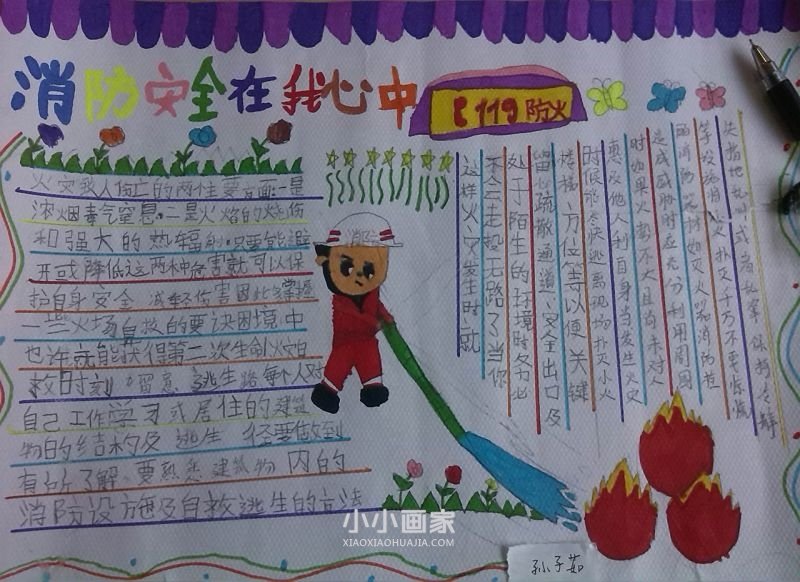 消防安全在我心中
119防火
火灾致人伤亡的两个主要方面:一是
浓烟毒气窒息,二是火焰的烧伤
和强大的热辐射只要能避
开或降低这两种危害就可以保
护自身安全,减轻伤害因此多掌握
一些火场自救的要诀困境中
也许就能获得第二次生命火灾自
救时刻留意逃生路每个人对
自己工作学习或居住的建筑
物的结构及逃生径要做到
有所了解要熟悉建筑物内的
消防设施及自救逃生的方法
这样火灾发生时就
不会走投无路了当你
处于陌生的环境时务必
留心疏散通道、安全出口及
楼梯方位等以便关键
时候能尽快逃离现场扑灭小火
惠及他人利自身当发生火灾
时如果火势不大且尚未对人
造成威胁时应充分利用周围
的消防器材如灭火器消防栓
等设施将小火扑灭千万不要惊慌
失措地乱叫
消防
孙子茹
小小画家
XIAOXIAOHUAJIA.COM